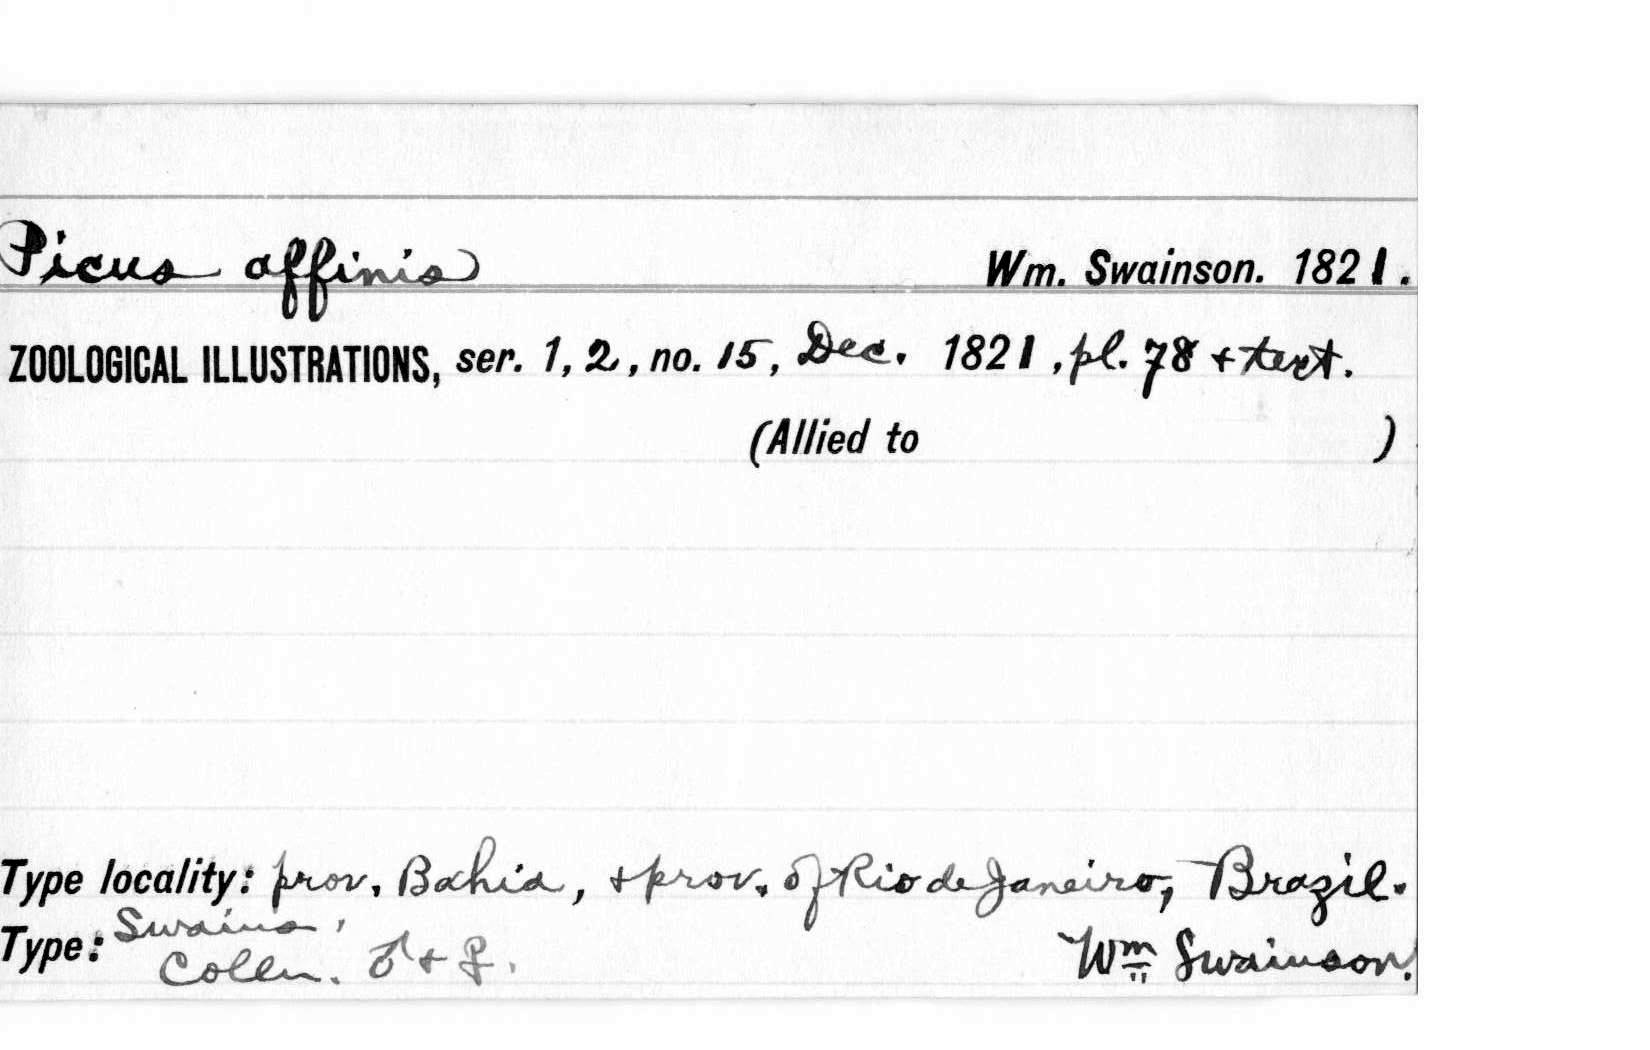 Picus affinis Wm. Swainson. 1821.
ZOOLOGICAL ILLUSTRATIONS, ser. 1, 2, no. 15, Dec. 1821, pl. 78 + text.
(Allied to )
Type locality: prov. Bahia, + prov. of Rio de Janeiro, Brazil.
Type: Swains'
Colln. ♂ + ♀. Wm Swainson.